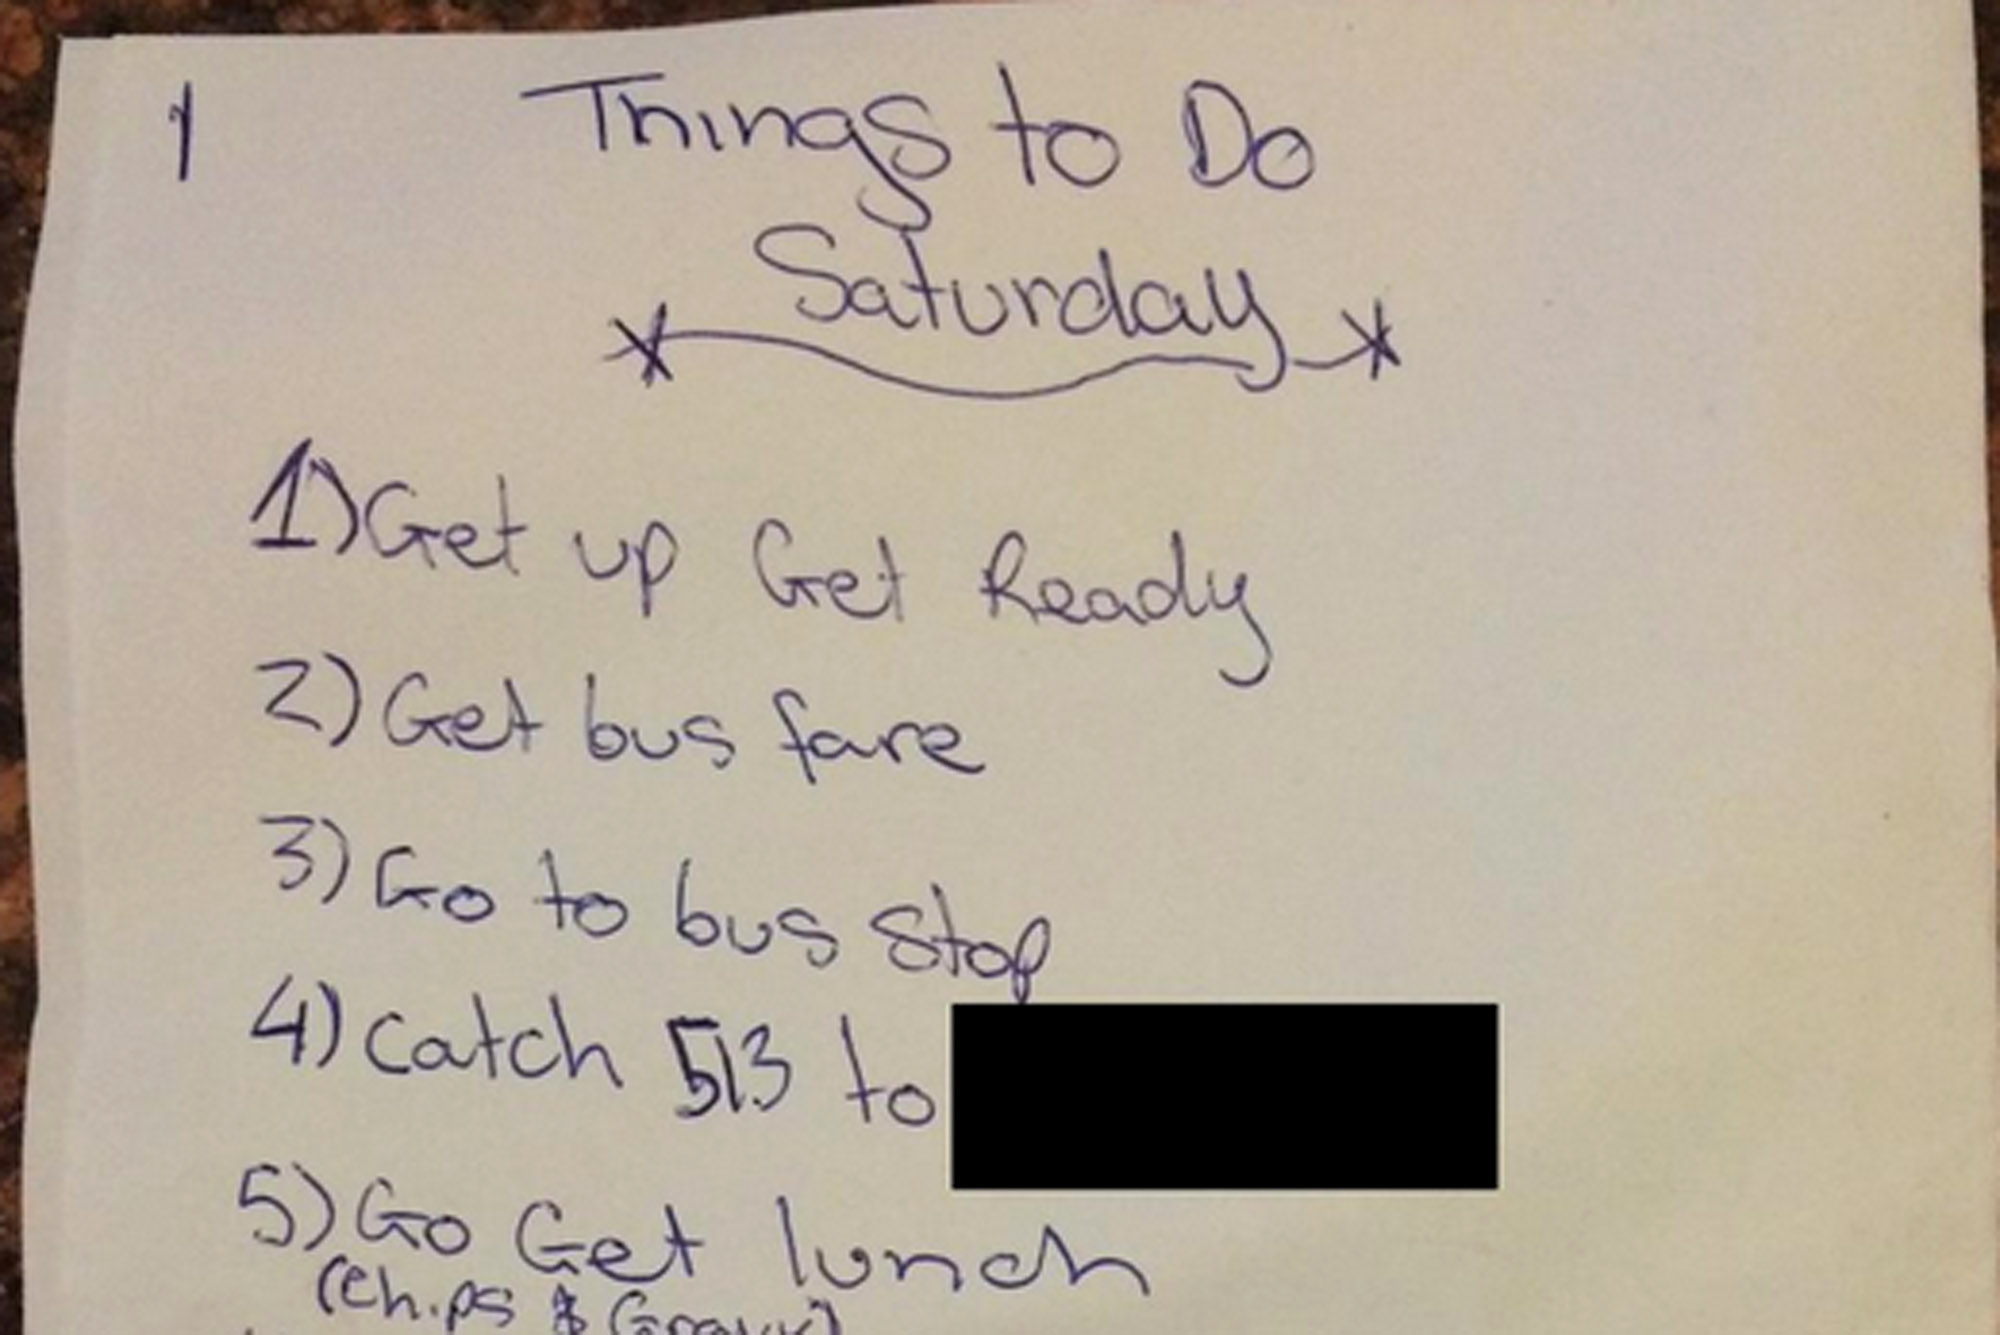 1
Things to Do
Saturday
1) Get up Get Ready
2) Get bus fare
3) Go to bus stop
4) Catch 513 to
5) Go Get lunch
(Chips & Gravy)